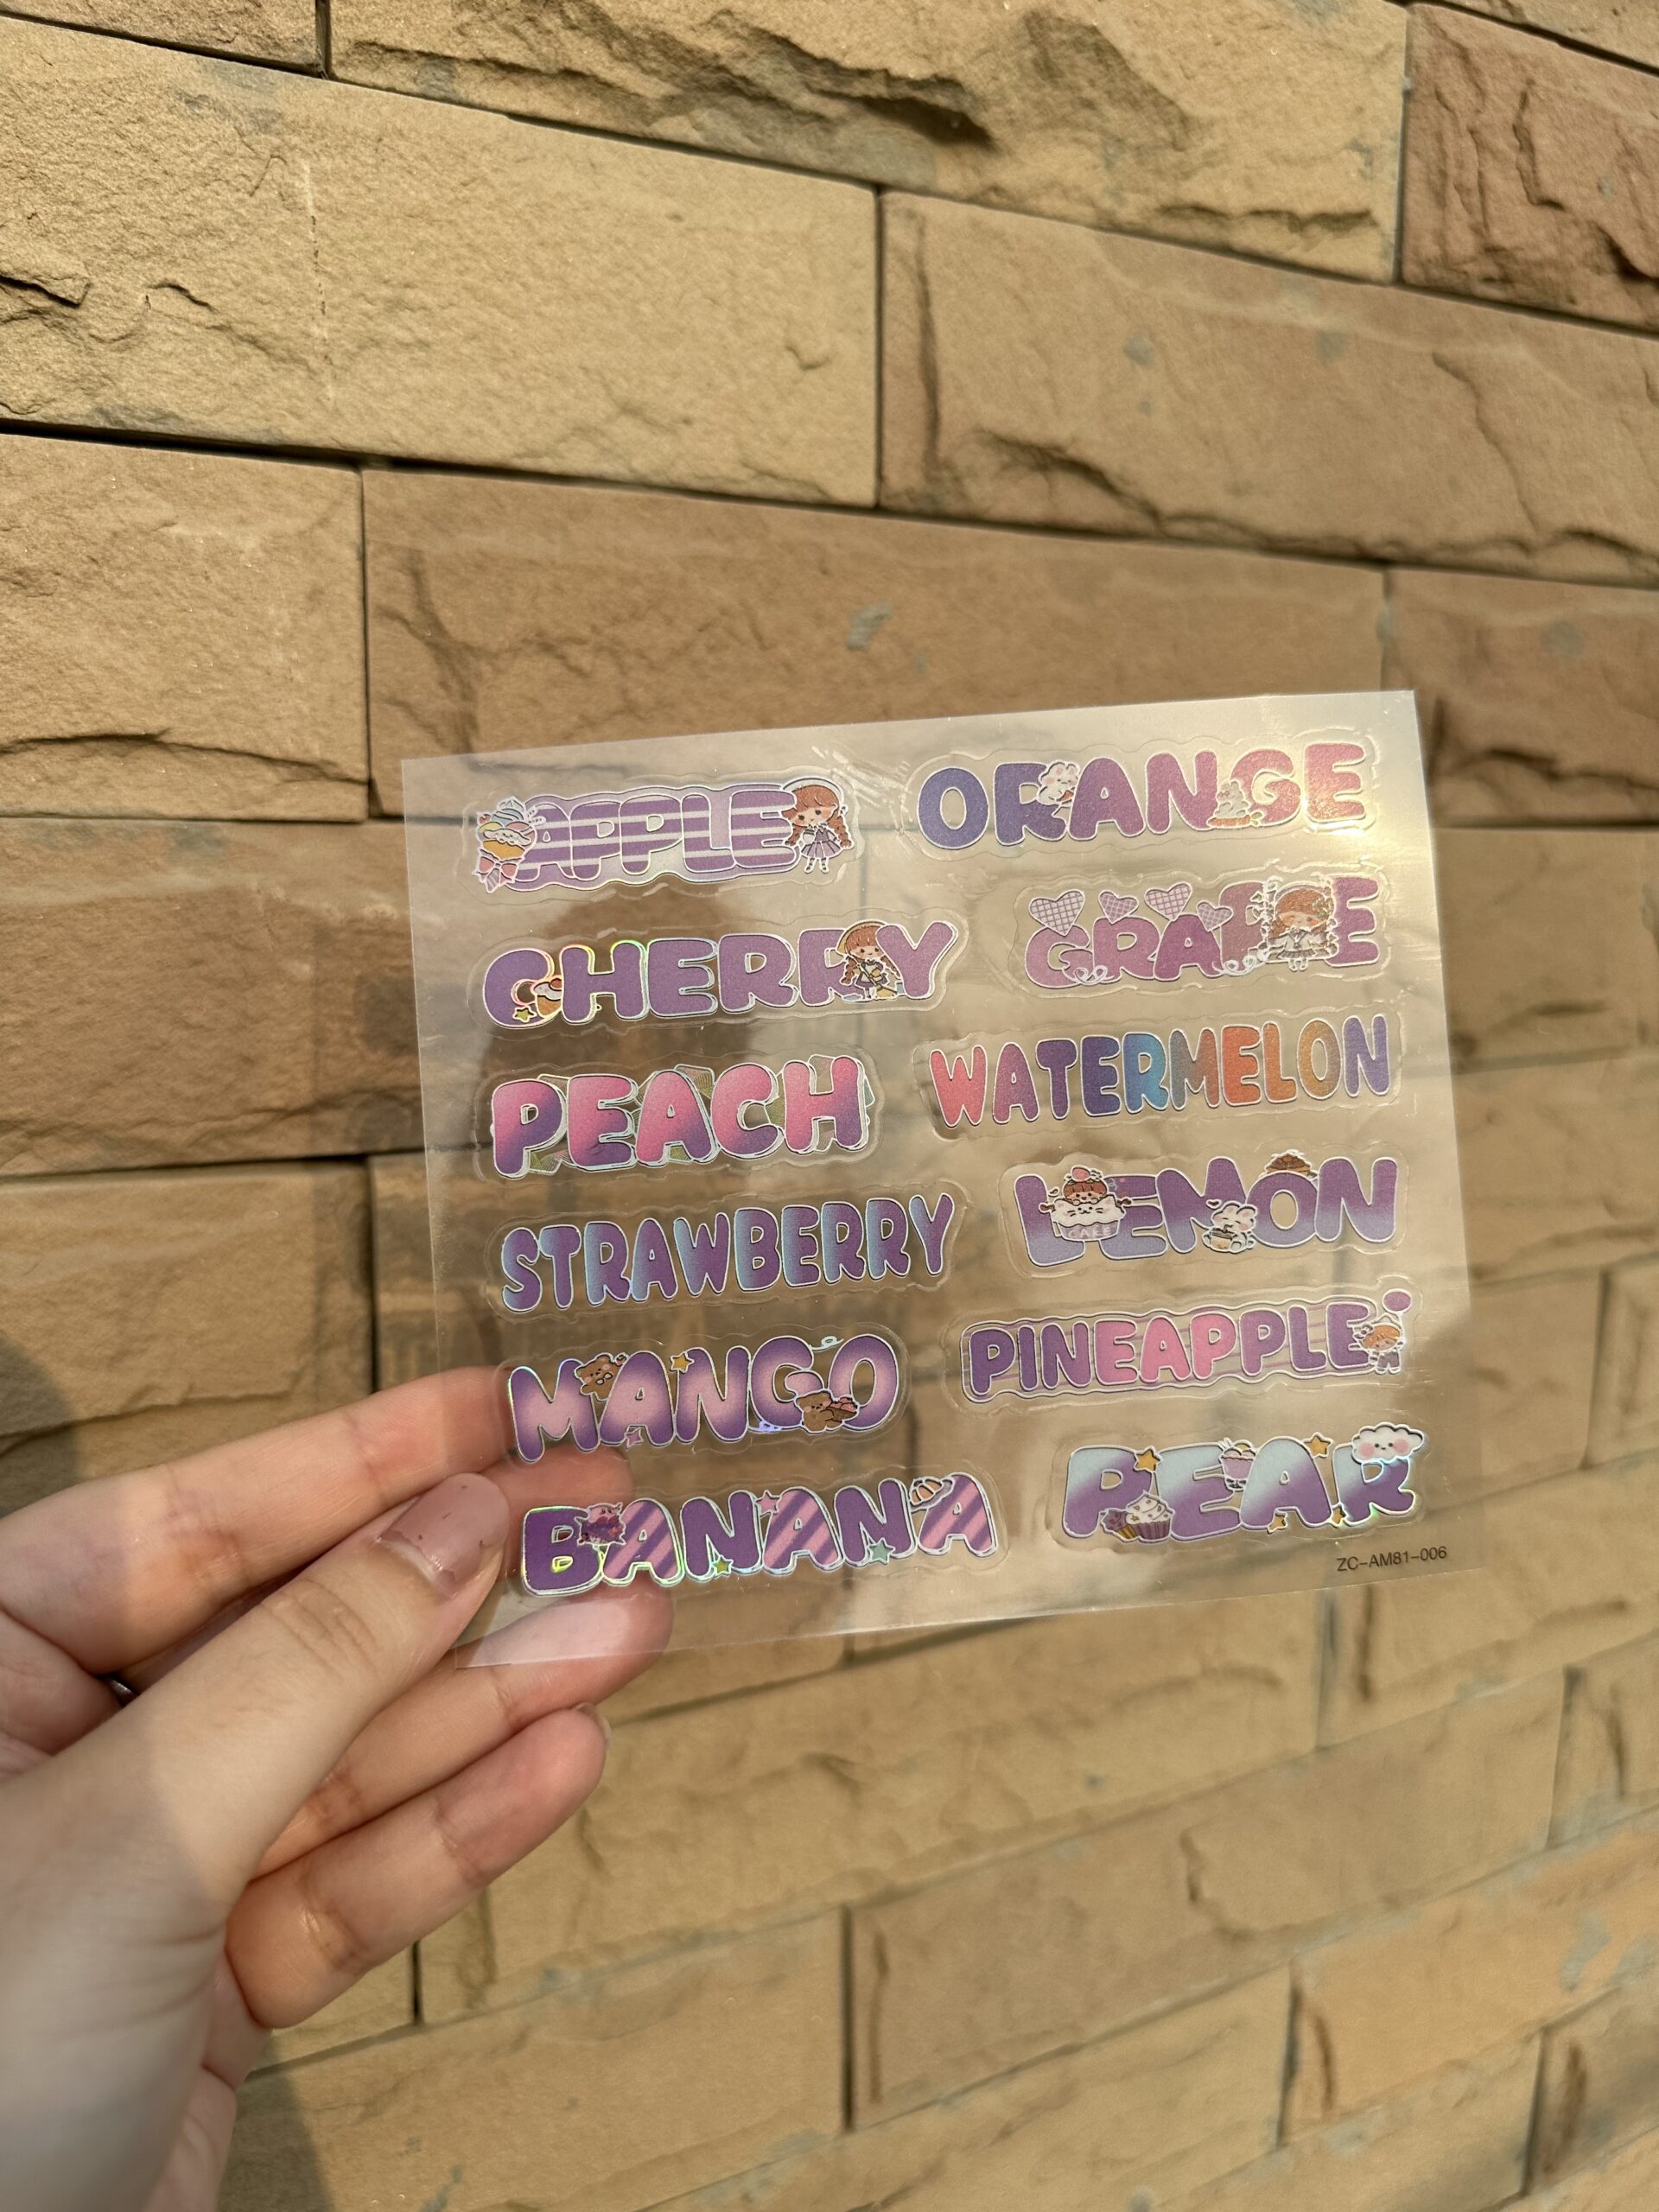 APPLE
ORANGE
CHERRY
GRAPE
PEACH
WATERMELON
STRAWBERRY
LEMON
CAFE
MANGO
PINEAPPLE
BANANA
PEAR
ZC-AM81-006